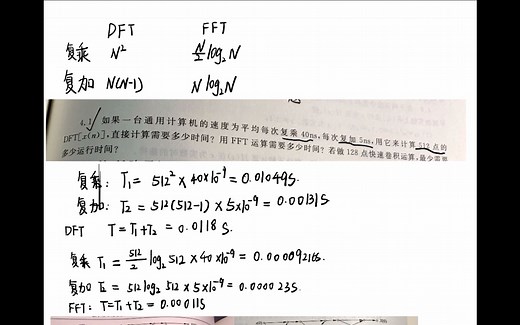 DFT FFT
复乘 N² N/2 log₂N
复加 N(N-1) N log₂N
4.1 如果一台通用计算机的速度为平均每次复乘 40ns,每次复加 5ns,用它来计算 512 点的
DFT[x(n)],直接计算需要多少时间?用 FFT 运算需要多少时间?若做 128 点快速卷积运算,最少需要
多少运行时间?
复乘: T₁ = 512² × 40×10⁻⁹ = 0.01049s.
复加: T₂ = 512(512-1) × 5×10⁻⁹ = 0.00131s
DFT T = T₁+T₂ = 0.0118 s.
复乘 T₁ = 512/2 log₂ 512 × 40 ×10⁻⁹ = 0.00009216s.
复加 T₂ = 512 log₂ 512 × 5×10⁻⁹ = 0.000023s.
FFT: T=T₁+T₂ = 0.00011s